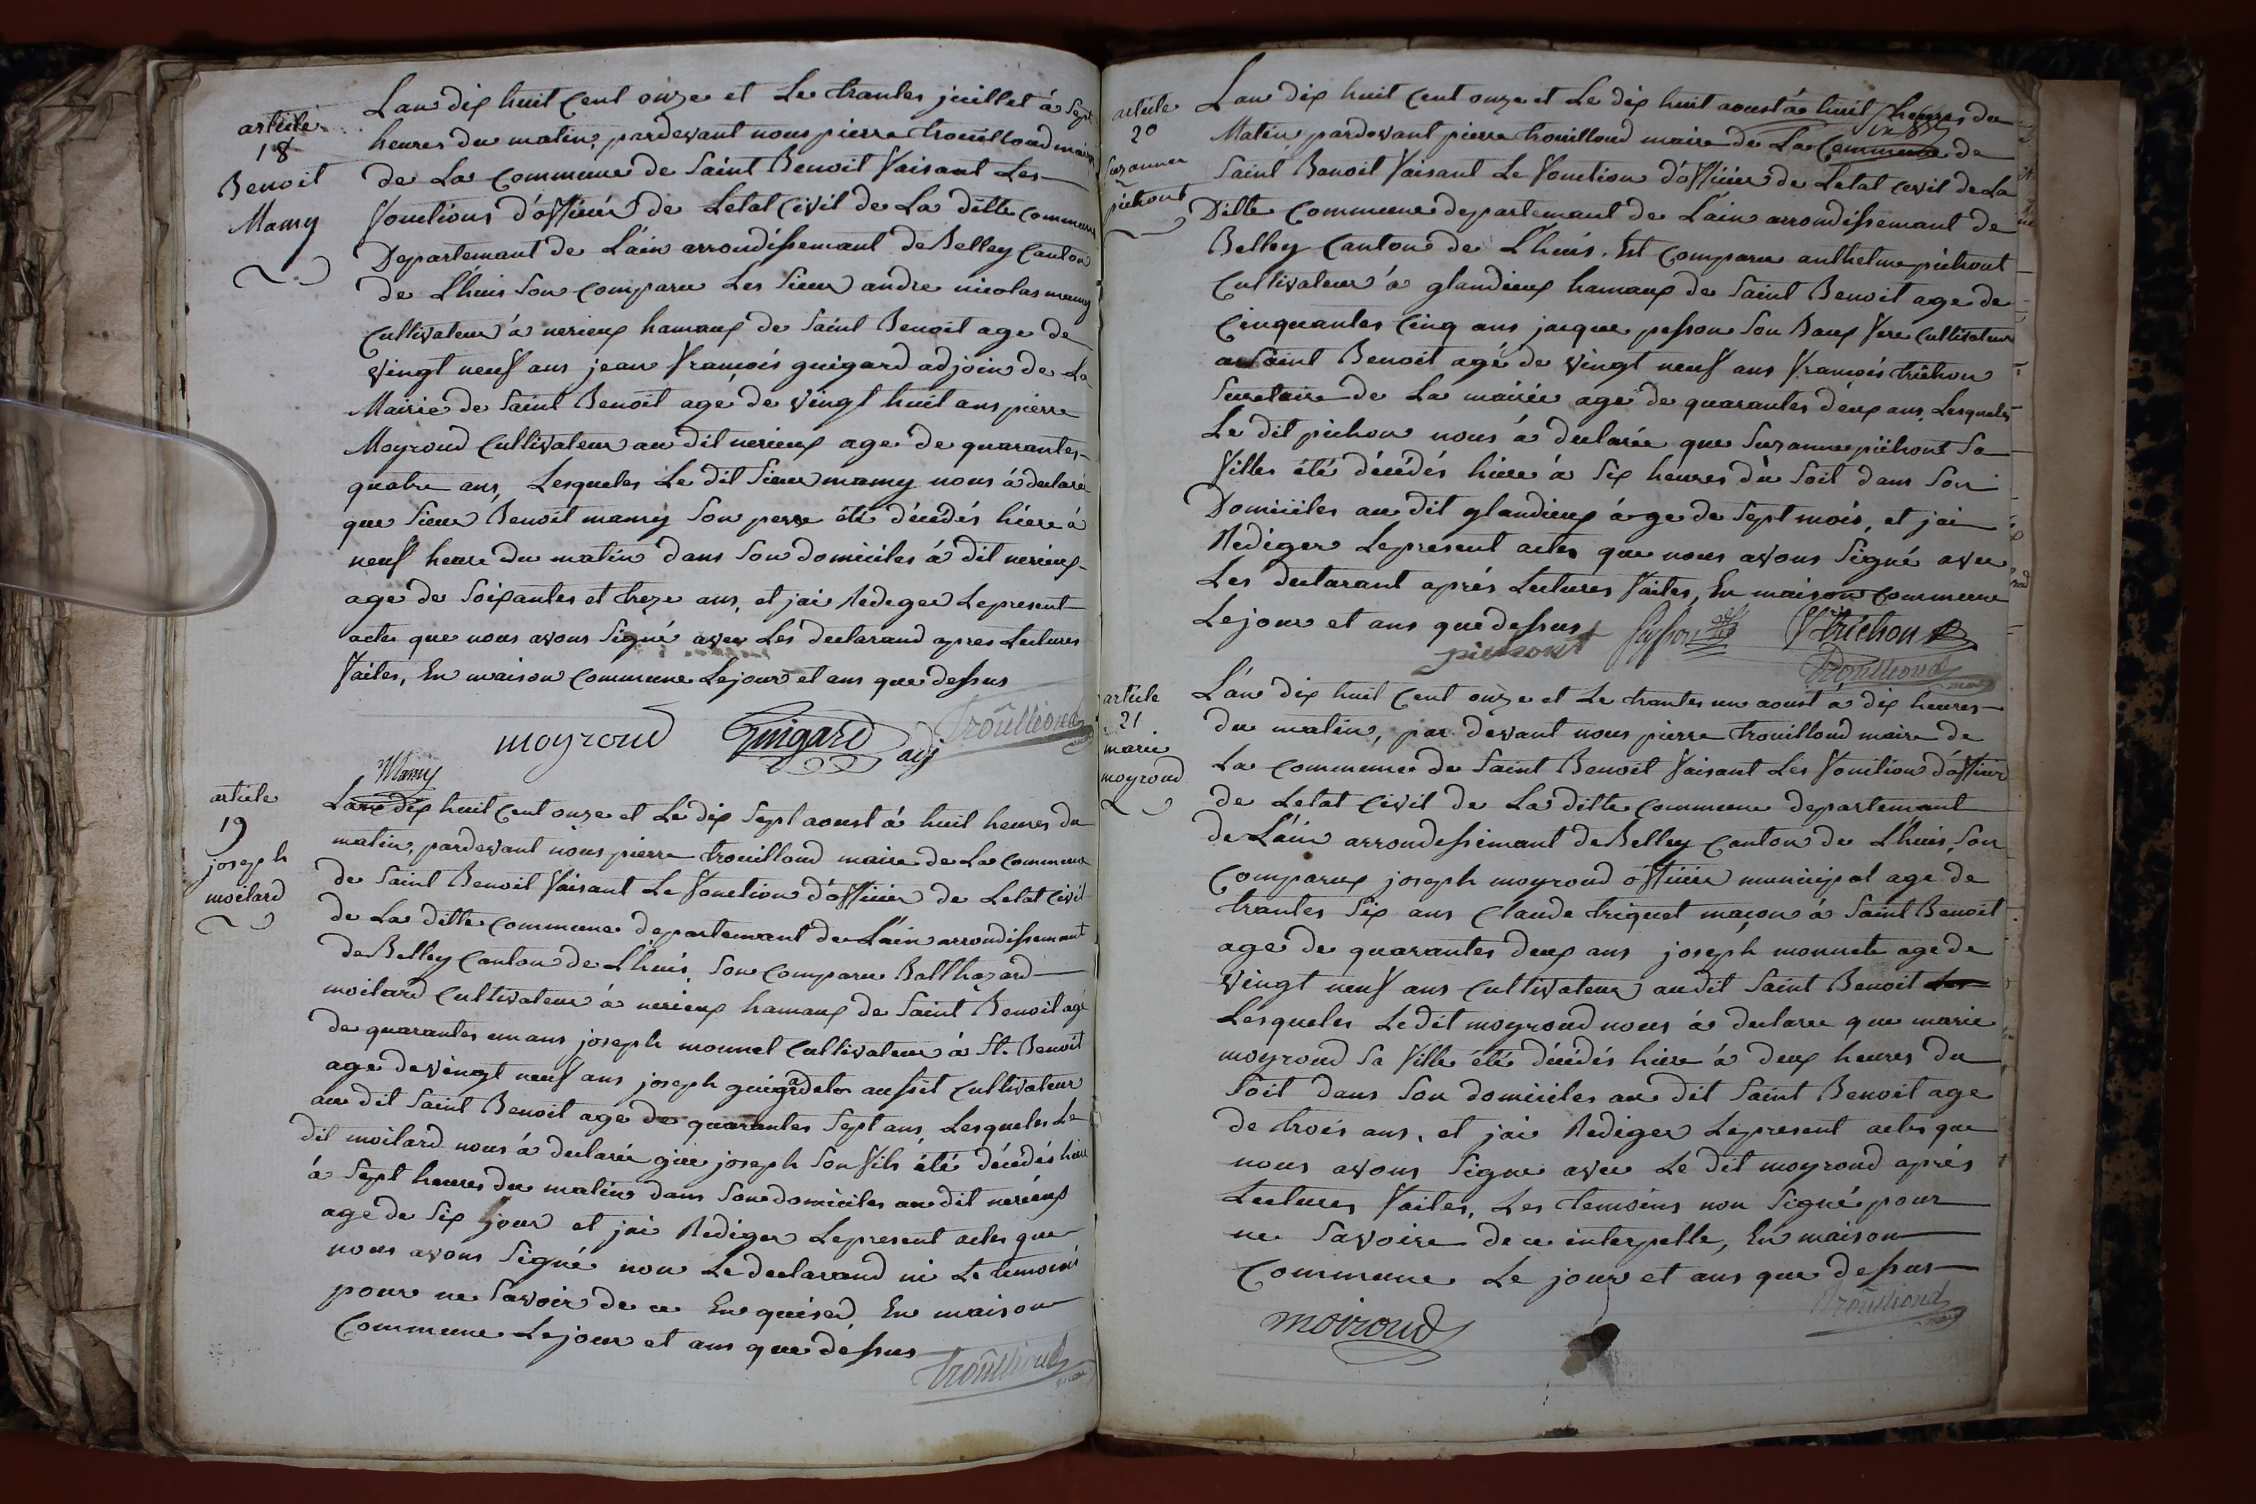 article
18
Benoit
Mamy
Lan dix huit Cent onze et Le trantes juillet à Sept
heures du matin, pardevant nous pierre trouilloud maire
de La Commune de Saint Benoit faisant Les
fonctions d'officier de Letat Civil de La ditte commune
Departemant de Lain arrondissemant de Belley Canton
de Lhuis Son comparu Les Sieur andre nicolas mamy
Cultivateur à nerieux hamaux de Saint Benoit age de
vingt neuf ans jean francois guigard adjoin de La
Mairie de Saint Benoit age de vingt huit ans pierre
Moyroud Cultivateur au dit nerieux age de quarantes
quatre ans, Lesqueles Le dit Sieur mamy nous à declaré
que Sieur Benoit mamy Son perre été décédés hiere à
neuf heure du matin dans Son domiciles à dit nerieux
age de Soixantes et treze ans, et jai Redeger Lepresent
actes que nous avons Signé avec Les declarand apres Lectures
faites, En maison Commune Lejour et ans que dessus
moyroud Guigard adj trouilloud maire
Mamy
article
19
joseph
moilard
Lan dix huit Cent onze et Le dix Sept aoust à huit heures du
matin, pardevant nous pierre trouilloud maire de La commune
de Saint Benoit faisant Le fonction d'officier de Letat Civil
de La ditte commune departemant de Lain arrondissemant
de Belley Canton de Lhuis, Son comparu Balthazard
moilard Cultivateur à nerieux hamaux de Saint Benoit agé
de quarantes un ans joseph monnet Cultivateur à St. Benoit
age de vingt neuf ans joseph aussit Cultivateur
au dit Saint Benoit age de quarantes Sept ans, Lesqueles Le
dit moilard nous à declarée que joseph Son fils été décédés hiere
à Sept heures du matin dans Son domiciles au dit nerieux
age de Six jour et jai Rediger Lepresent actes que
nous avons Signé non Le declarand ni Le temoins
pour ne Savoir de ce En quised, En maison
Commune Lejour et ans que dessus
trouilloud maire
article
20
Suzanne
pichont
Lan dix huit Cent onze et Le dix huit aoust à huit heures du
Matin, pardevant pierre trouilloud maire de La Commune de
Saint Benoit faisant Le fonction d'officier de Letat Civil de La
Ditte Commune departemant de Lain arrondissemant de
Belley Canton de Lhuis. Est comparu anthelme pichont
Cultivateur à glandieux hamaux de Saint Benoit age de
Cinquantes Cinq ans jacque pesson Son Baux frere Cultivateur
a Saint Benoit agé de vingt neuf ans francois trichon
Secretaire de La mairie age de quarantes deux ans, Lesqueles
Le dit pichon nous à declarée que Suzanne pichont Sa
filles été décédés hiere à Six heures du Soit dans Son
Domiciles au dit glandieux áge de Sept mois, et jai
Rediger Lepresent actes que nous avons Signé avec
Les declarant aprés Lectures faites, En maison commune
Lejour et ans que dessus
pichont pesson ftrichon
trouilloud maire
article
21
marie
moyroud
L'an dix huit Cent onze et Le trantes un aoust à dix heures
du matin, par devant nous pierre trouilloud maire de
La commune de Saint Benoit faisant Les fonction d'officier
de Letat Civil de La ditte commune departemant
de Lain arrondessemant de Belley Canton de Lhuis, Son
Comparux joseph moyroud officier municipal age de
trantes Six ans Claude triquet maçon à Saint Benoit
age de quarantes deux ans joseph monnete age de
vingt neuf ans Cultivateur audit Saint Benoit
Lesqueles Ledit moyroud nous à declaree que marie
moyroud Sa fille été décédés hiere à deux heures du
Soit dans Son domiciles au dit Saint Benoit age
de trois ans, et jai Rediger Lepresent actes que
nous avons Signe avec Le dit moyroud aprés
Lectures faites, Les temoins non Signé pour
ne Savoire de ce interpelle, En maison
Commune Le jour et ans que dessus
moiroud trouilloud maire